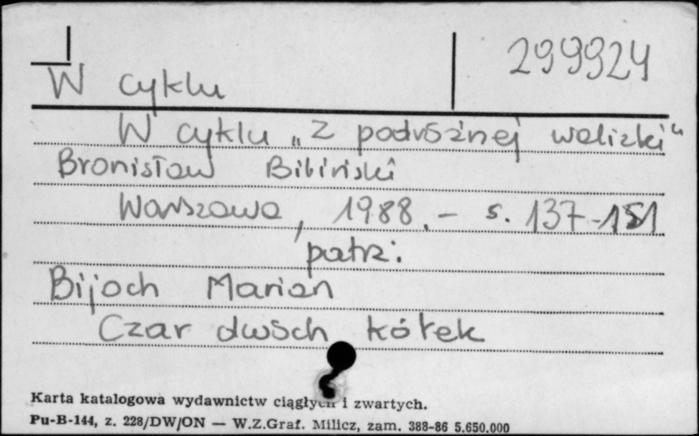 299924
W cyklu
W cyklu „Z podróżnej walizki"
Bronisław Bibiński
Warszawa, 1988. - s. 137-151
patrz:
Bijoch Marian
Czar dwóch kółek
Karta katalogowa wydawnictw ciągłych i zwartych.
Pu-B-144, z. 228/DW/ON — W.Z.Graf. Milicz, zam. 388-86 5.650.000